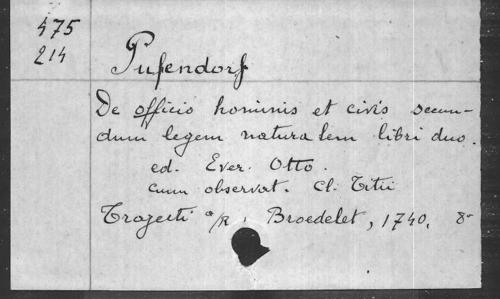 475
214
Pufendorf
De officio hominis et civis secun-
dum legem naturalem libri duo.
ed. Ever. Otto.
cum observat. Cl. Titii
Trajecti a/R, Broedelet, 1740. 8-